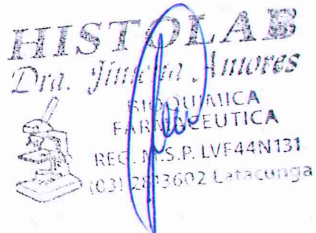 HISTOLAB
Dra. Jimena Amores
BIOQUIMICA
FARMACEUTICA
REG. M.S.P. LVF44N131
(03) 2813602 Latacunga